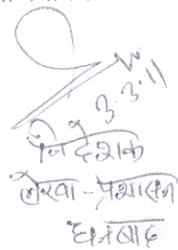 3.3.11
निदेशक
लेखा - प्रशासन
धनबाद